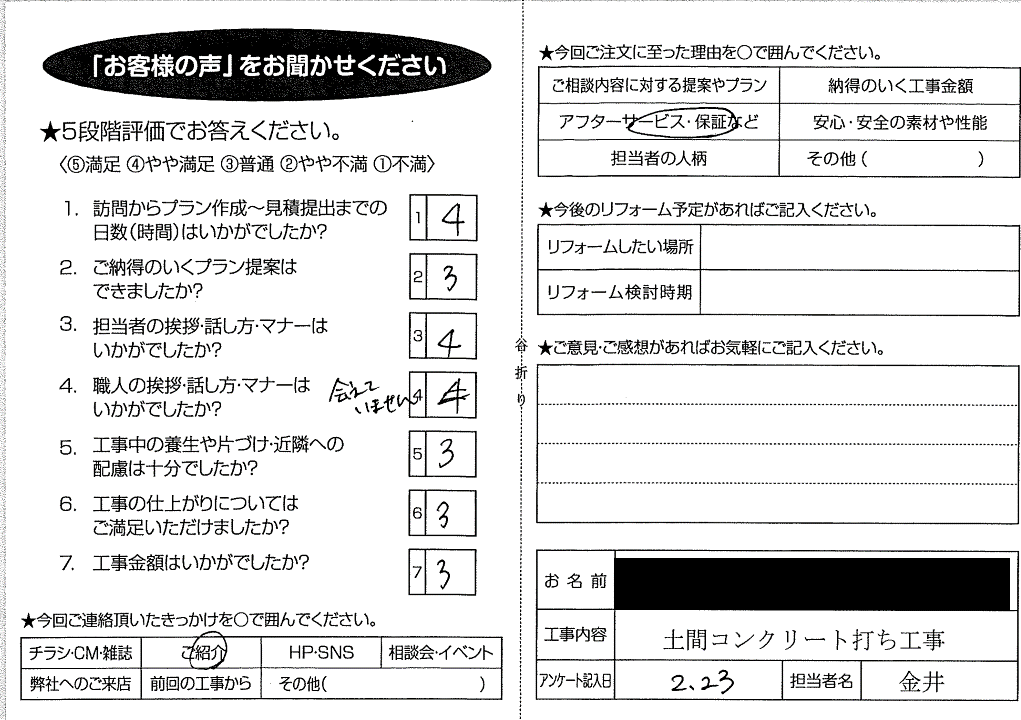 「お客様の声」をお聞かせください
★5段階評価でお答えください。
〈⑤満足 ④やや満足 ③普通 ②やや不満 ①不満〉
1. 訪問からプラン作成～見積提出までの
日数(時間)はいかがでしたか?
1 4
2. ご納得のいくプラン提案は
できましたか?
2 3
3. 担当者の挨拶・話し方・マナーは
いかがでしたか?
3 4
4. 職人の挨拶・話し方・マナーは
いかがでしたか?
会えて
いません
4 4
5. 工事中の養生や片づけ・近隣への
配慮は十分でしたか?
5 3
6. 工事の仕上がりについては
ご満足いただけましたか?
6 3
7. 工事金額はいかがでしたか?
7 3
★今回ご連絡頂いたきっかけを○で囲んでください。
チラシ・CM・雑誌 ご紹介 HP・SNS 相談会・イベント
弊社へのご来店 前回の工事から その他( )
谷折り
★今回ご注文に至った理由を○で囲んでください。
ご相談内容に対する提案やプラン 納得のいく工事金額
アフターサービス・保証など 安心・安全の素材や性能
担当者の人柄 その他( )
★今後のリフォーム予定があればご記入ください。
リフォームしたい場所
リフォーム検討時期
★ご意見・ご感想があればお気軽にご記入ください。
お名前
工事内容 土間コンクリート打ち工事
アンケート記入日 2.23 担当者名 金井